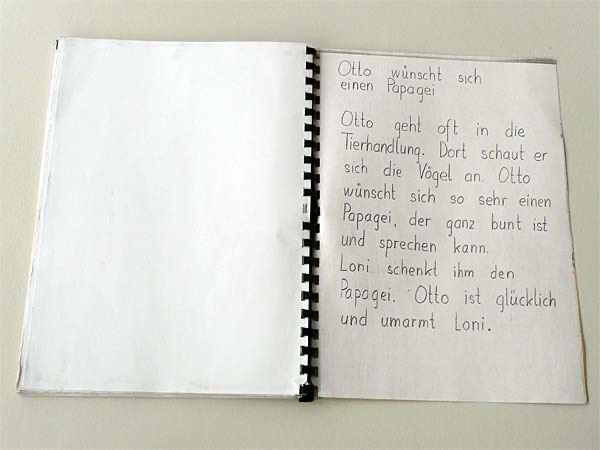 Otto wünscht sich
einen Papagei
Otto geht oft in die
Tierhandlung. Dort schaut er
sich die Vögel an. Otto
wünscht sich so sehr einen
Papagei, der ganz bunt ist
und sprechen kann.
Loni schenkt ihm den
Papagei. Otto ist glücklich
und umarmt Loni.